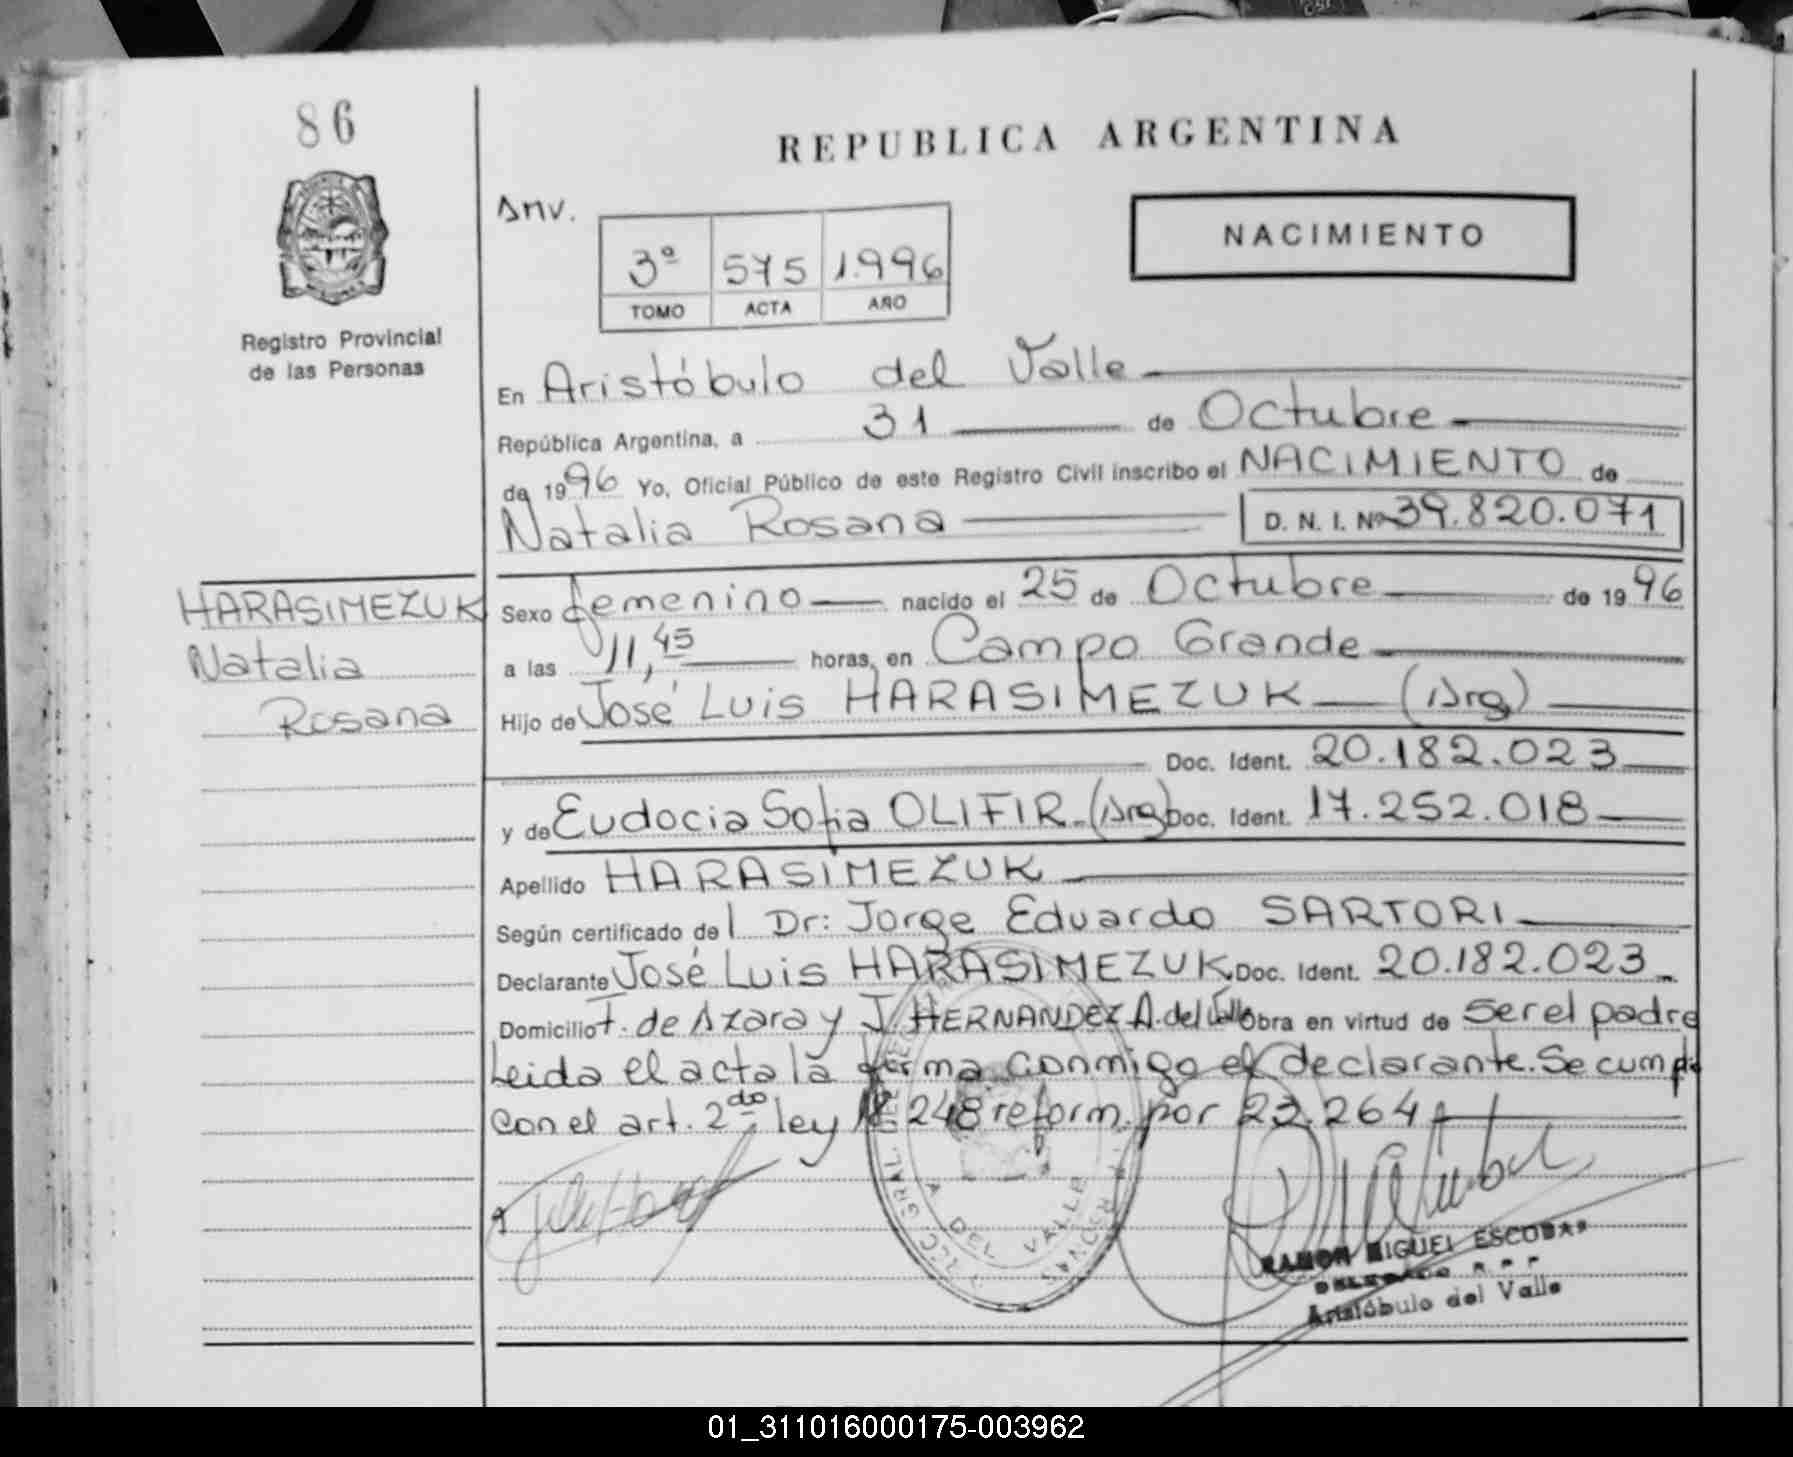 86
REPUBLICA ARGENTINA
Anv.
NACIMIENTO
3º 575 1.996
TOMO ACTA AÑO
Registro Provincial
de las Personas
En Aristóbulo del Valle
República Argentina, a 31 de Octubre
de 1996 Yo, Oficial Público de este Registro Civil inscribo el NACIMIENTO de
Natalia Rosana D. N. I. Nº 39.820.071
HARASIMEZUK
Natalia
Rosana
Sexo femenino nacido el 25 de Octubre de 1996
a las 11,45 horas, en Campo Grande
Hijo de José Luis HARASIMEZUK (Arg)
Doc. Ident. 20.182.023
y de Eudocia Sofia OLIFIR (Arg) Doc. Ident. 17.252.018
Apellido HARASIMEZUK
Según certificado del Dr: Jorge Eduardo SARTORI
Declarante José Luis HARASIMEZUK Doc. Ident. 20.182.023
Domicilio F. de Azara y J. HERNANDEZ A. del Valle Obra en virtud de ser el padre
Leida el acta la firma conmigo el declarante. Se cumple
con el art. 2do ley 18.248 reform. por 23.264
A. DEL VALLE
RAMON MIGUEL ESCOBAR
DELEGADO R P P
Aristóbulo del Valle
01_311016000175-003962